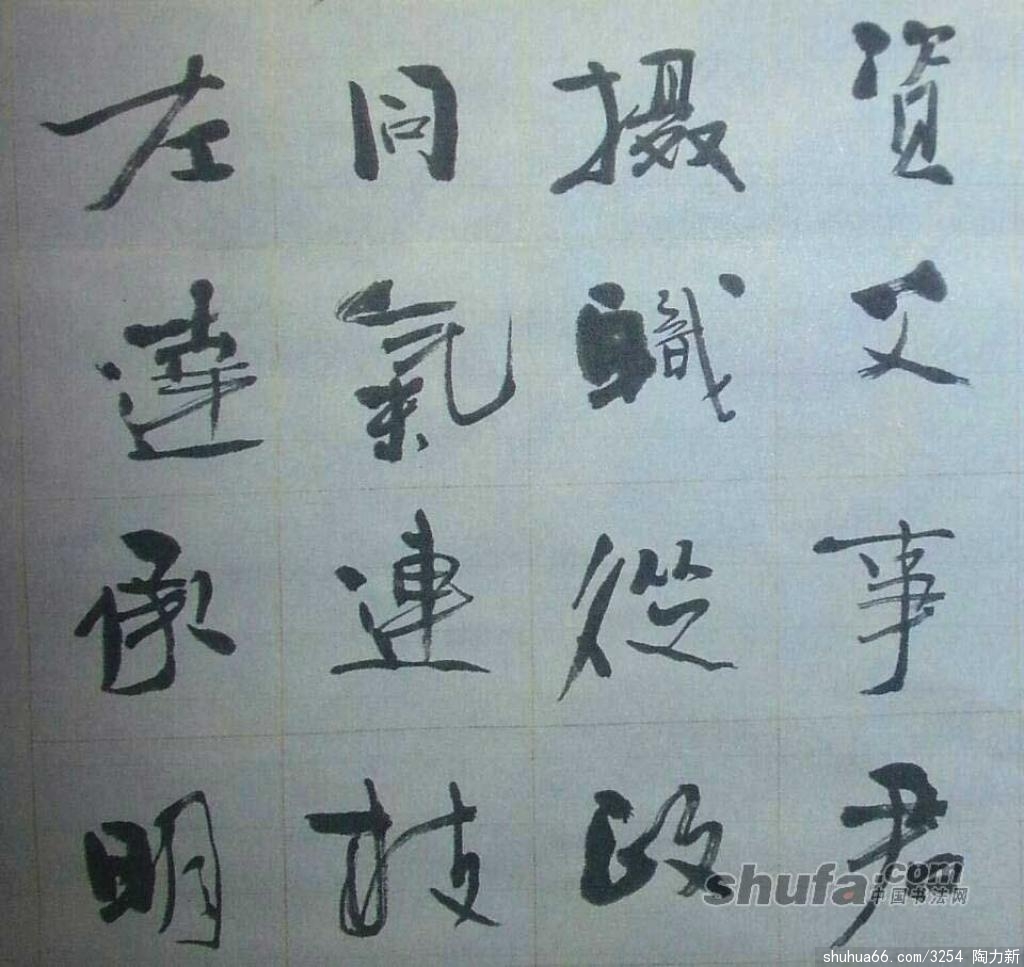 資父事君
摄職從政
同氣連枝
左達承明
shufa.com
中国书法网
shuhua66.com/3254 陶力新